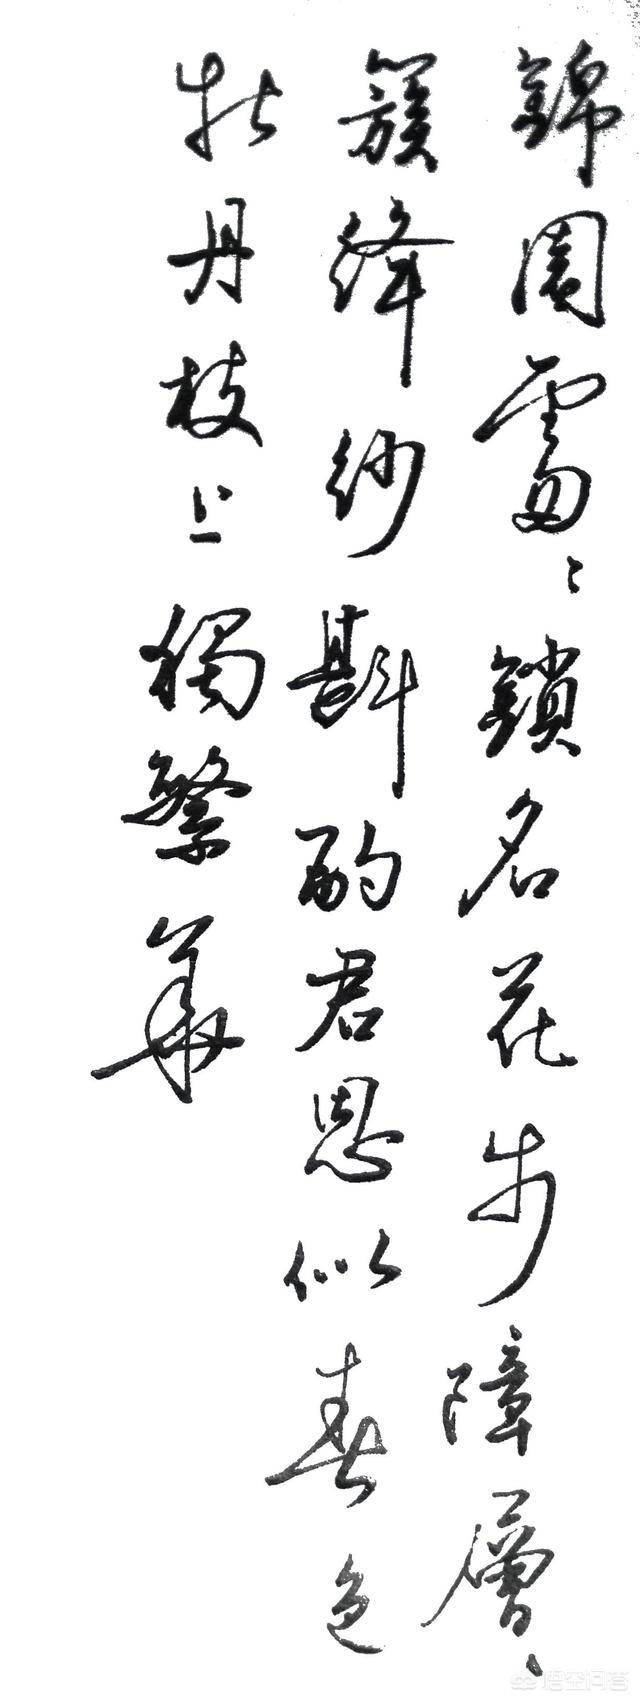 錦園處〻鎖名花步障層〻
簇絳紗斟酌君恩似春色
牡丹枝上獨繁華
悟空问答